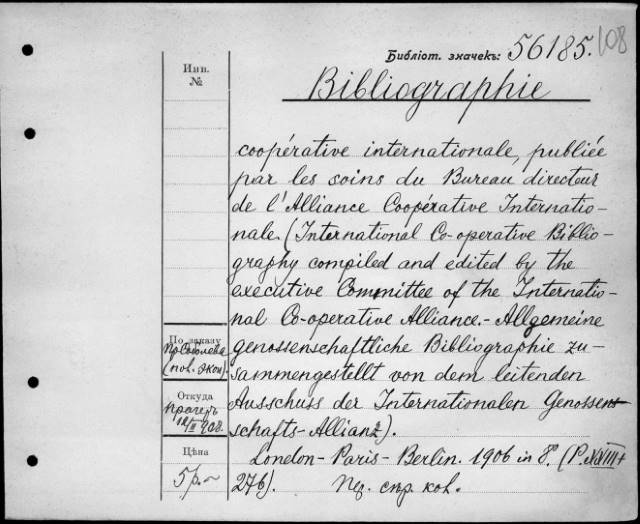 Библіот. значекъ: 56185. 108
Bibliographie
Инв.
№
coopérative internationale, publiée
par les soins du Bureau directeur
de l'Alliance Coopérative Internatio-
nale. (International Co-operative Biblio-
graphy compiled and edited by the
executive Committee of the Internatio-
nal Co-operative Alliance.- Allgemeine
genossenschaftliche Bibliographie zu-
sammengestellt von dem leitenden
Ausschuss der Internationalen Genossen-
schafts-Allianz).
London- Paris- Berlin. 1906 in 8°. (P. XXIII+
276).
По заказу
Пр. Соболева
(пол. экон).
Откуда
908.
Цѣна
5 р. ~